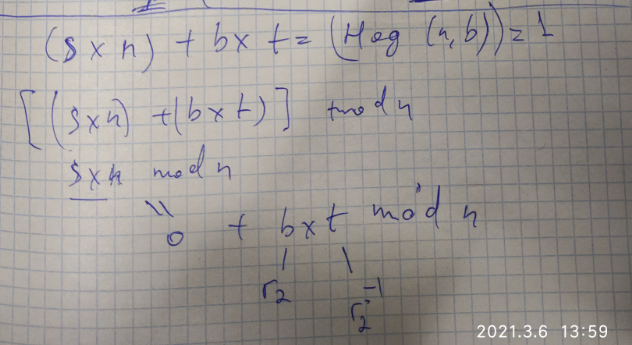 (s x n) + b x t = (Нод (n, b)) = 1
[(s x n) + (b x t)] mod n
s x n mod n
0 + b x t mod n
r₂ r₂⁻¹
2021.3.6 13:59